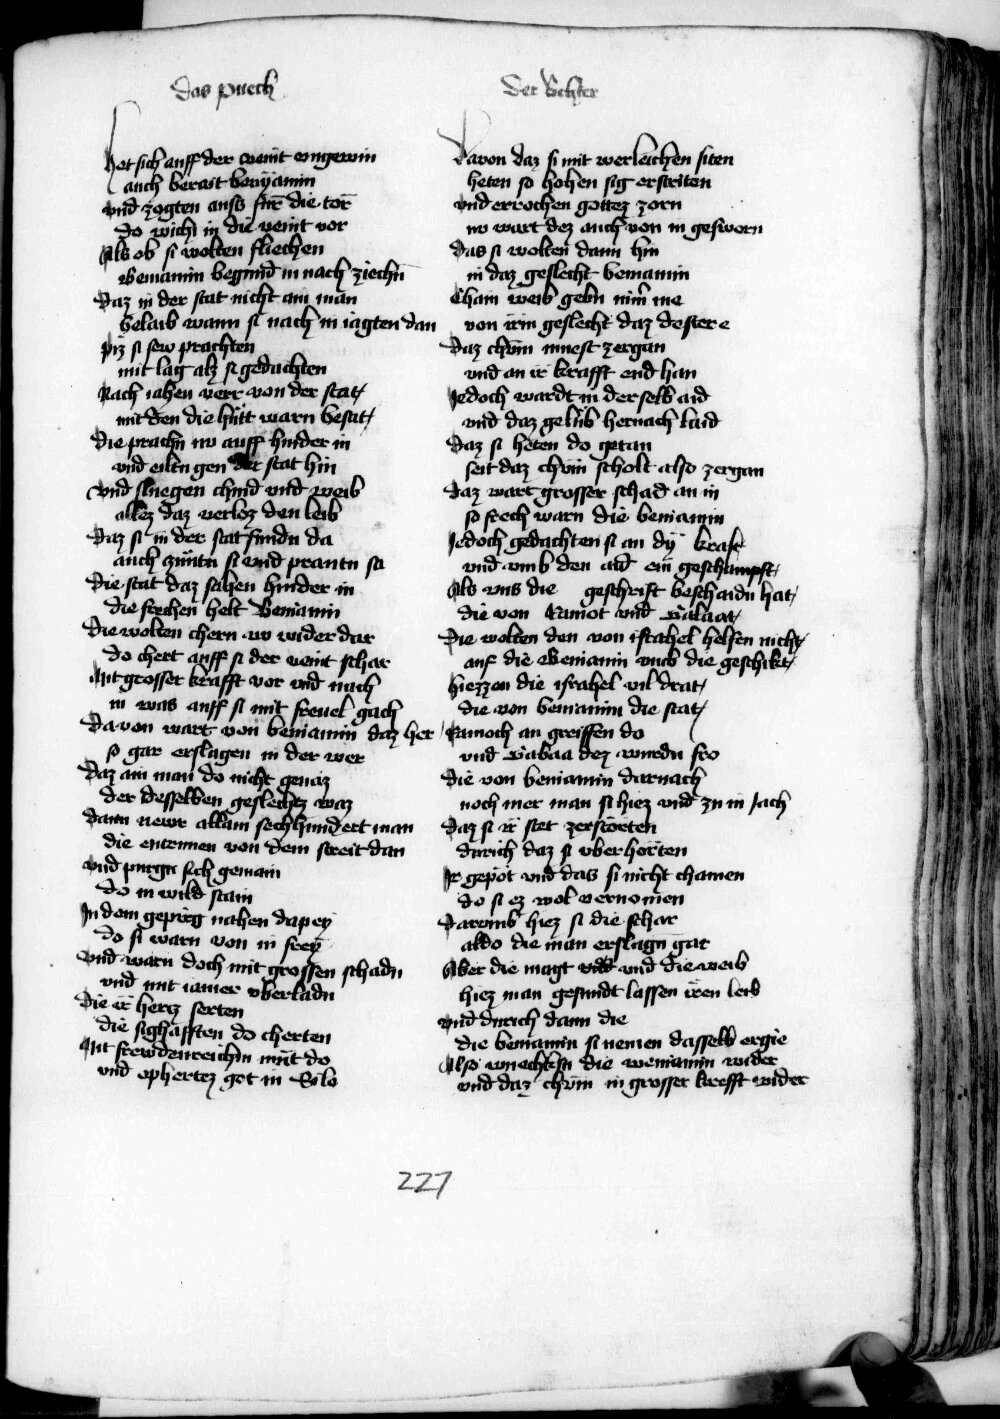 das puech
der Richter
Het sich auff der veint ungewin
auch berait beniamin
vnd zogten auss für die tor
do wichn in die veint vor
Als ob si wolten fliechen
Beniamin begund in nach ziechn
Daz in der stat nicht ain man
belaib wann si nach in iagten dan
piz si sew prachten
mit lag alz si gedachten
Nach iahen verr von der stat
mit den die hüt warn besat
die prachn nv auff hinder in
vnd eiltn gen der stat hin
vnd sluegen chind vnd weib
allez daz verloz den leib
Daz si in der stat fundn da
auch züntn si vnd prantn sa
Die stat daz sahen hinder in
die frechen helt Beniamin
Die wolten chern nv wider dar
do chert auff si der veint schar
Mit grosser krafft vor vnd nach
in was auff si mit frevel gach
Da von wart von beniamin daz her
so gar erslagen in der wer
Daz ain man do nicht genaz
der desselben geslechtz waz
Dann newr allain sechhundert man
die entrunnen von dem streit dan
vnd purgn sich gemain
do in wild stain
In dem gepirg nahen dapey
do si warn von in frey
vnd warn doch mit grossen schadn
vnd mit iamer vberladn
Die ir hertz serten
die sighafften do cherten
Mit frewdenreichm müt do
vnd ophertez got in Silo
Davon daz si mit werleichen siten
heten so hohen sig erstriten
vnd errochen gottez zorn
nv wart dez auch von in gesworn
das si wolten dann hin
in daz geslecht beniamin
Chain weib gebn nim me
von irm geslecht daz dester e
Daz chün muest zergan
vnd an ir krafft end han
Jedoch wardt in derselb aid
vnd daz gelüb hernach laid
Daz si heten do getan
seit daz chün scholt also zergan
Daz wart grosser schad an in
so frech warn die beniamin
Jedoch gedachten si an dy kraft
vnd vmb den aid ein geschampft
Als vns die geschrift beschaidn hat
die von Ramot vnd Galaat
Die wolten den von israhel helfen nicht
auf die Beniamin vmb die geschikt
hiezzen die israhel vil drat
die von beniamin die stat
Ramoch an greiffen do
vnd Gabaa dez wurdn fro
Die von beniamin darnach
noch mer man si hiez vnd zu in iach
Daz si ir stet zerstorten
durich daz si vberhorten
Ir gepot vnd das si nicht chamen
do si ez wol vernomen
Darumb hiez si die schar
aldo die man erslagn gar
Aber die magt vnd vnd die weib
hiez man gesundt lassen iren leib
vnd durich dann die
die beniamin si nemen dasselb ergie
Also wuechksn die weniamin wider
vnd daz chün in grosser krefft wider
227